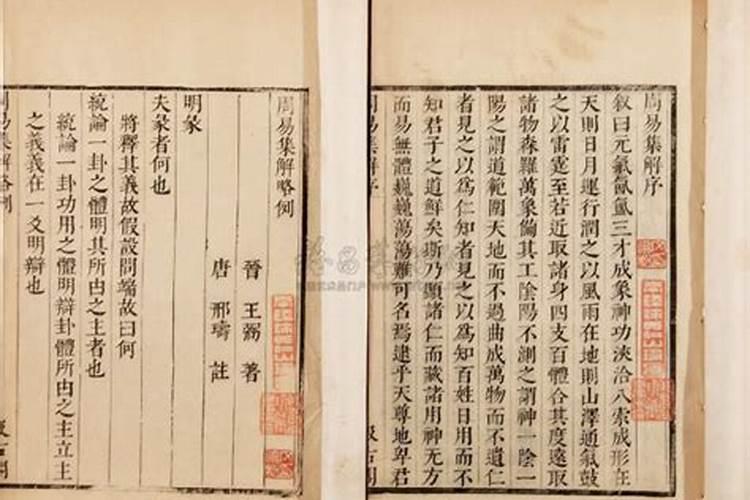 周易集解序
叙曰元氣氤氳三才成象神功浹洽八索成形在
天則日月運行潤之以風雨在地則山澤通氣鼓
之以雷霆至若近取諸身四支百體合其度遠取
諸物森羅萬象備其工陰陽不測之謂神一陰一
陽之謂道範圍天地而不過曲成萬物而不遺仁
者見之以為仁知者見之以為知百姓日用而不
知君子之道鮮矣斯乃顯諸仁而藏諸用神无方
而易無體巍巍蕩蕩難可名焉逮乎天尊地卑君
周易集解序
周易集解略例
晉 王弼 著
唐 邢璹 註
明彖
夫彖者何也
將釋其義故假設問端故曰何
統論一卦之體明其所由之主者也
統論一卦功用之體明辯卦體所由之主立主
之義義在一爻明辯也